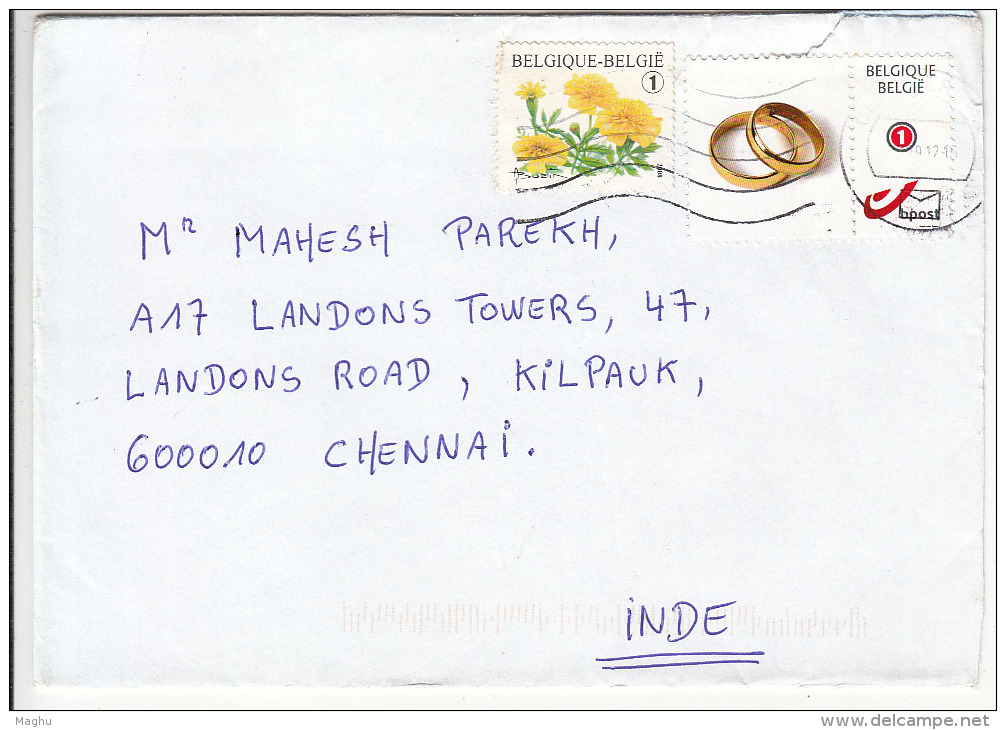 BELGIQUE-BELGIË
1
BELGIQUE
BELGIË
1
bpost
MR MAHESH PAREKH,
A17 LANDONS TOWERS, 47,
LANDONS ROAD, KiLPAUK,
600010 CHENNAi.
iNDE
Maghu
www.delcampe.net